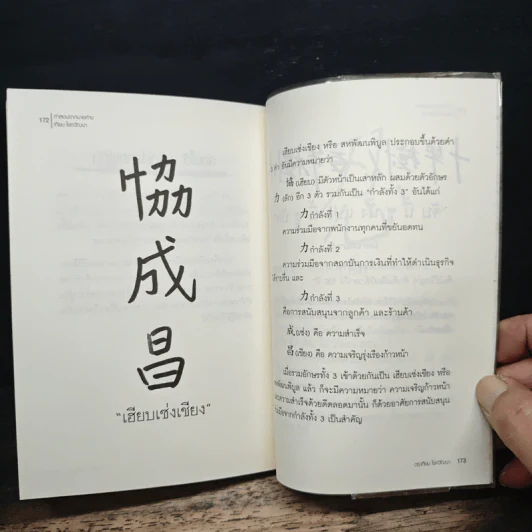 172
คำสอนจากนายห้าง
เทียม โชควัฒนา
協
成
昌
"เฮียบเซ่งเชียง"
เฮียบเซ่งเชียง หรือ สหพัฒนพิบูล ประกอบขึ้นด้วยคำ
คำ อันมีความหมายว่า
協 (เฮียบ) มีตัวหน้าเป็นเสาหลัก ผสมด้วยตัวอักษร
力 (ลัก) อีก 3 ตัว รวมกันเป็น "กำลังทั้ง 3" อันได้แก่
力 กำลังที่ 1
ความร่วมมือจากพนักงานทุกคนที่ขยันอดทน
力 กำลังที่ 2
ความร่วมมือจากสถาบันการเงินที่ทำให้ดำเนินธุรกิจ
ได้ราบรื่น และ
力 กำลังที่ 3
คือการสนับสนุนจากลูกค้า และร้านค้า
成 (เซ่ง) คือ ความสำเร็จ
昌 (เชียง) คือ ความเจริญรุ่งเรืองก้าวหน้า
เมื่อรวมอักษรทั้ง 3 เข้าด้วยกันเป็น เฮียบเซ่งเชียง หรือ
สหพัฒนพิบูล แล้ว ก็จะมีความหมายว่า ความเจริญก้าวหน้า
และความสำเร็จด้วยดีตลอดมานั้น ก็ด้วยอาศัยการสนับสนุน
ร่วมมือจากกำลังทั้ง 3 เป็นสำคัญ
ดร.เทียม โชควัฒนา
173